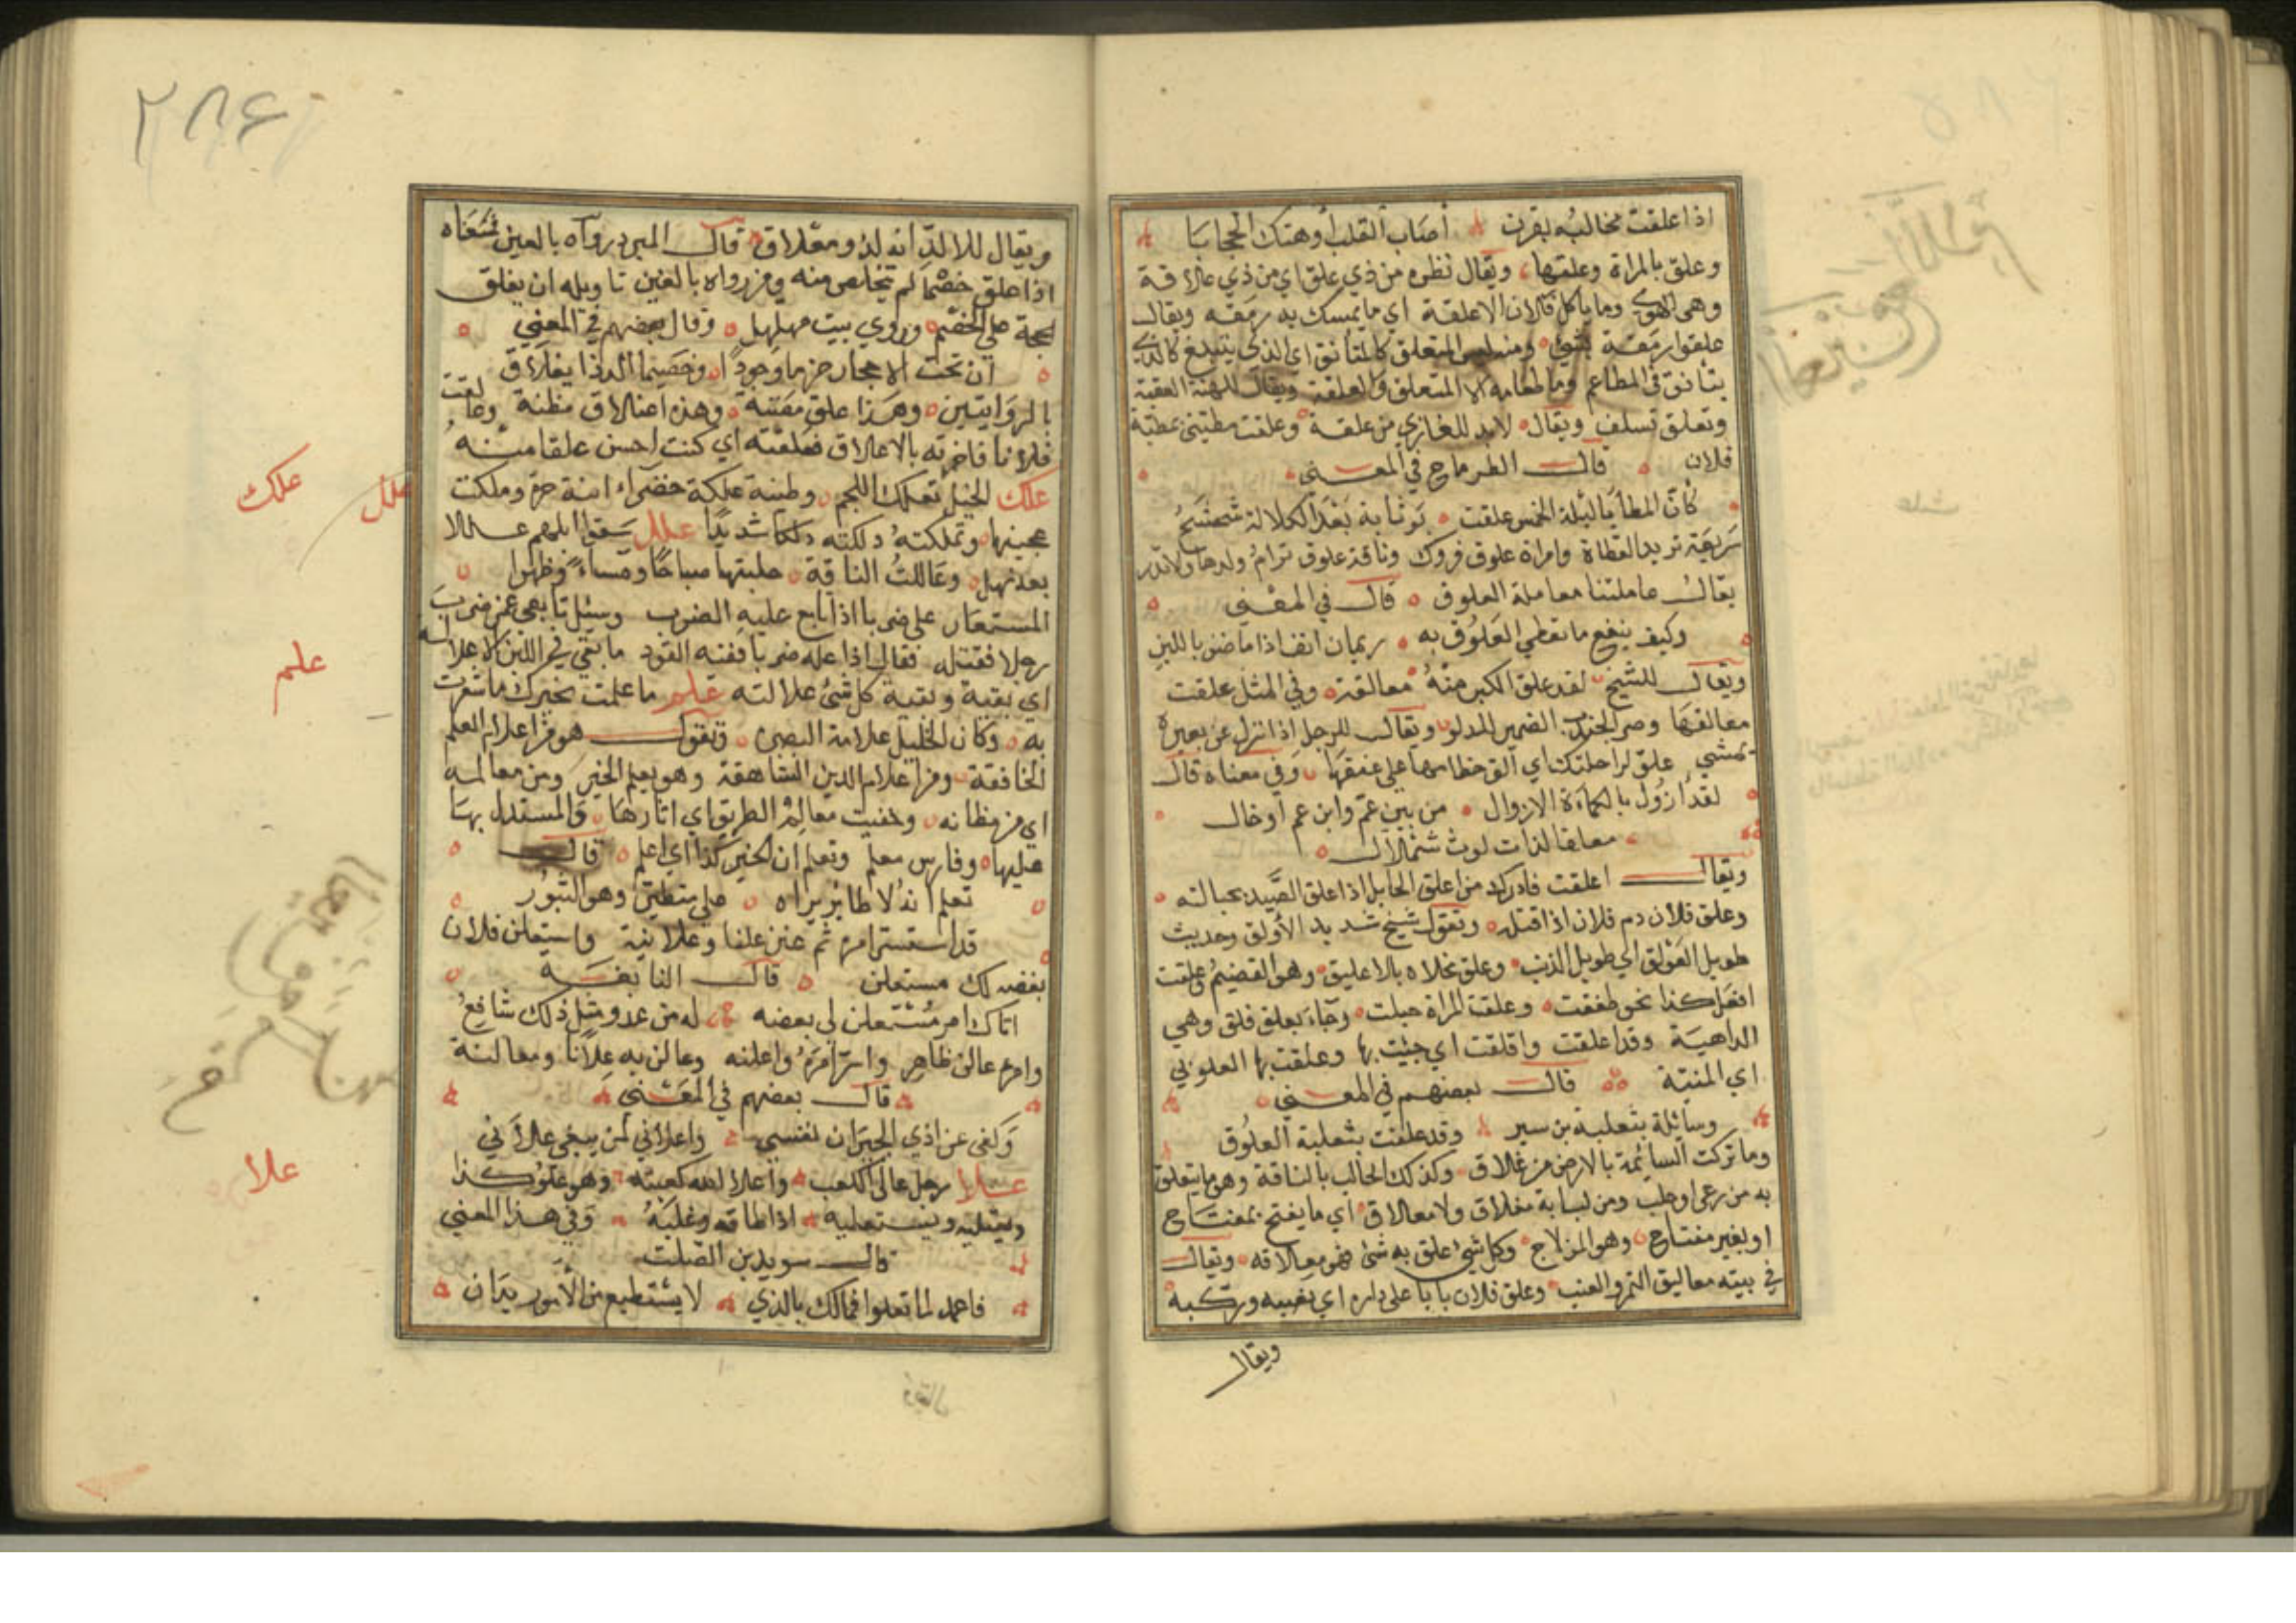 اذا علقت مخالبه بقرن أصاب القلب أو هتك الحجابا
وعلق بالمراة وعلقها ويقال نظره من ذي علق اي من ذي علاقة
وهي الهوى وما ياكل فلان الا علقة اي ما يمسك به رمقه ويقال
علقوا رمقة بشئ ومنه ليس المتعلق كالمتأنق اي الذي يتبلغ كالذي
يتأنق في المطاعم وما طعامه الا المتعلق والعلقة ويقال
وتعلق تسلف ويقال لابد للغازي من علقة وعلقت مطيتي مطية
فلان قال الطرماح في المعنى
كأن المطايا ليلة الخمس علقت بوثابة بعد الكلالة شحشح
سريعة تريد القطاة وامراة علوق فروك وناقة علوق ترأم ولدها ولا تدر
يقال عاملتنا معاملة العلوق قال في المعنى
وكيف ينفع ما تعطي العلوق به ريمان انف اذا ما ضن باللبن
ويقال للشيخ لقد علق الكبر منه معالقة وفي المثل علقت
معالقها وصر الجندب الضمير للدلو ويقال للرجل اذا نزل عن بعيره
تمشي علق لراحلتك اي الق خطامها على عنقها وفي معناه قال
لقد ازول بالكماة الازوال من بين عم وابن عم أو خال
معلقا لذات لوث شملال
ويقال اعلقت فادرك من اعلق الحابل اذا علق الصيد بحبالته
وعلق فلان دم فلان اذا قتله وتقول شيخ شديد الأولق وحديث
طويل العولق اي طويل الذنب وعلق علاه بالاعليق وهو القضيم وعلقت
افعل كذا نحو طفقت وعلقت المراة حبلت وجاء بعلق فلق وهي
الداهية وقد اعلقت وافلقت اي جئت بها وعلقت بها العلوق بي
اي المنية قال بعضهم في المعنى
وسائلة بثعلبة بن سير وقد علقت بثعلبة العلوق
وما تركت السائمة بالارض من علاق وكذلك الحالب بالناقة وهو ما يتعلق
به من رعي او حلب ومن لبابه مغلاق ولا معلاق اي ما يفتح بمفتاح
او بغير مفتاح وهو المزلاج وكل شئ علق به شئ فهو معلاقه ويقال
في بيته معاليق التمر والعنب وعلق فلان بابا على داره اي نصبه وركبه
ويقال
٢٨٤
ويقال للالد انه لذو معلاق قال المبرد رواه بالعين فمعناه
اذا علق خصما لم يتخلص منه ومن رواه بالغين تاويله ان يغلق
الحجة على الخصم وروي بيت مهلهل وقال بعضهم في المعنى
ان تحت الاحجار حزما وجودا وخصيما ألد ذا معلاق
بالروايتين وهذا علق مضنة وهذه اعلاق مظنة وعالقت
فلانا فاخرته بالاعلاق فعلقته اي كنت احسن علقا منه
علك الخيل تعلك اللجم وطينة علكة خضراء لينة حرة وملكت
عجينها وتملكته دلكته دلكا شديدا علل سقوا ابلهم عللا
بعد نهل وعاللت الناقة حلبتها صباحا ومساء وظهرا
المستعار على ضربا اذا تابع عليه الضرب وسئل تابعي عمن ضرب
رجلا فقتله فقال اذا عله ضربا ففيه القود ما بقي في اللبن الا علالة
اي بقية وبقية كل شئ علالته علم ما علمت بخبرك ما شعرت
به وكان الخليل علامة البصرة وتقول هو من اعلام العلم
الخافقة ومن اعلام الدين الشاهقة وهو يعلم الخير ومن معالمه
اي من مظانه وخفيت معالم الطريق اي اثارها والمستدل بها
عليها وفارس معلم وتعلم ان الخير كذا اي اعلم قال
تعلم انه لا طائر يراه على متطير وهو الثبور
قد استسر امره ثم علن علنا وعلانية واستعلن فلان
بغضه لك مستعلن قال النابغة
اتاك امرؤ مستعلن لي بغضه له من عدو مثل ذلك شافع
وامره عالن ظاهر واسر امره واعلنه وعالن به علانا ومعالنة
قال بعضهم في المعنى
وكفى عن اذي الجيران نفسي واعلاني لمن يبغي علاني
علا رجل عالي الكعب واعلا الله كعبه وهو علو كذا
ويعتليه ويستعليه اذا طاقه وغلبه وفي هذا المعنى
قال سويد بن الصلت
فاعمد لما تعلوا فمالك بالذي لا يستطيع من الأمور يدان
علك
علل
علم
علا